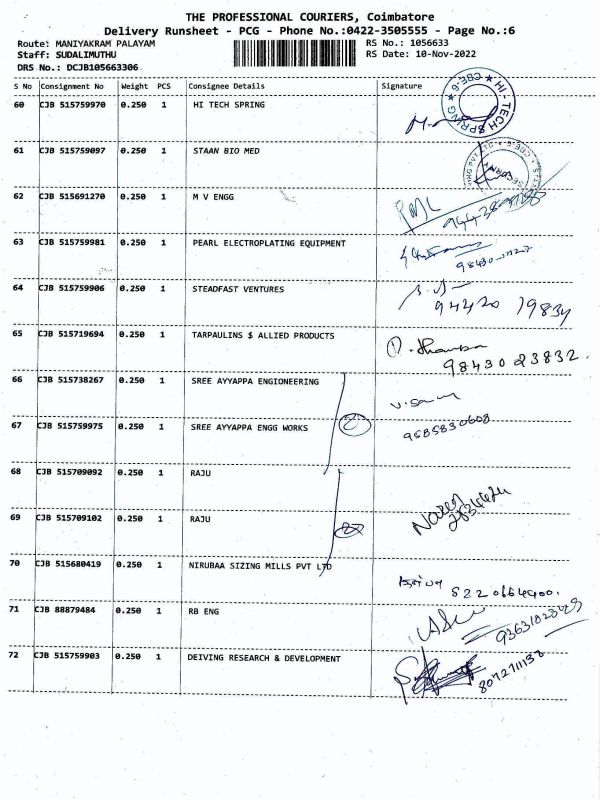 THE PROFESSIONAL COURIERS, Coimbatore
Delivery Runsheet - PCG - Phone No.:0422-3505555 - Page No.:6
Route: MANIYAKRAM PALAYAM RS No.: 1056633
Staff: SUDALIMUTHU RS Date: 10-Nov-2022
DRS No.: DCJB105663306
S No Consignment No Weight PCS Consignee Details Signature
60 CJB 515759970 0.250 1 HI TECH SPRING
HI-TECH SPRING ★ CBE-6 ★
61 CJB 515759097 0.250 1 STAAN BIO MED
62 CJB 515691270 0.250 1 M V ENGG
63 CJB 515759981 0.250 1 PEARL ELECTROPLATING EQUIPMENT
64 CJB 515759906 0.250 1 STEADFAST VENTURES
94420 19834
65 CJB 515719694 0.250 1 TARPAULINS $ ALLIED PRODUCTS
98430 23832.
66 CJB 515738267 0.250 1 SREE AYYAPPA ENGIONEERING
67 CJB 515759975 0.250 1 SREE AYYAPPA ENGG WORKS 2
9585830608
68 CJB 515709092 0.250 1 RAJU
69 CJB 515709102 0.250 1 RAJU
70 CJB 515680419 0.250 1 NIRUBAA SIZING MILLS PVT LTD
71 CJB 88879484 0.250 1 RB ENG
72 CJB 515759903 0.250 1 DEIVING RESEARCH & DEVELOPMENT